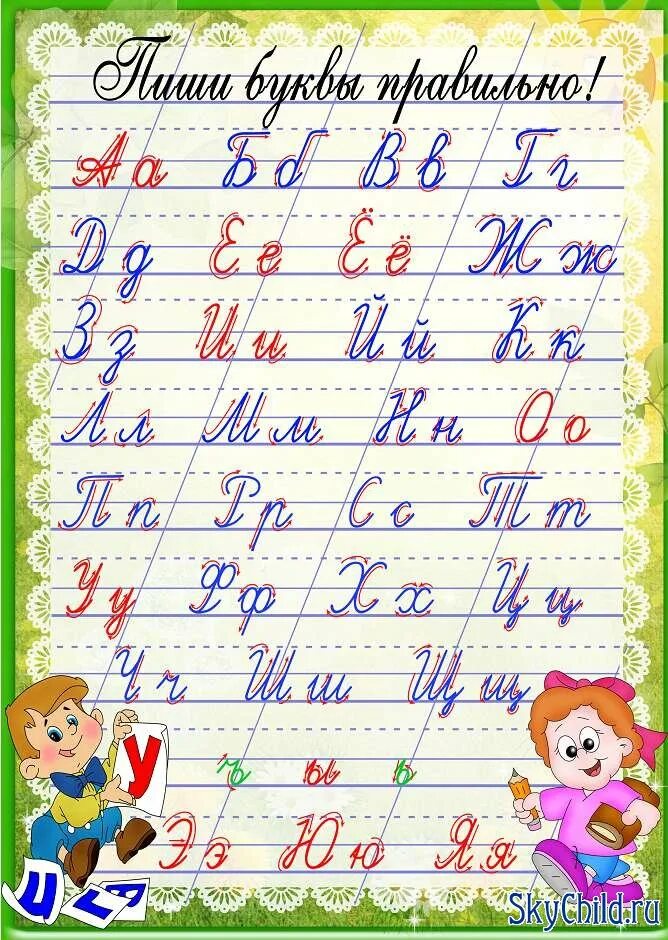 Пиши буквы правильно!
Аа Бб Вв Гг
Дд Ее Ёё Жж
Зз Ии Йй Кк
Лл Мм Нн Оо
Пп Рр Сс Тт
Уу Фф Хх Цц
Чч Шш Щщ
У ъ ы ь
Ээ Юю Яя
SkyChild.ru